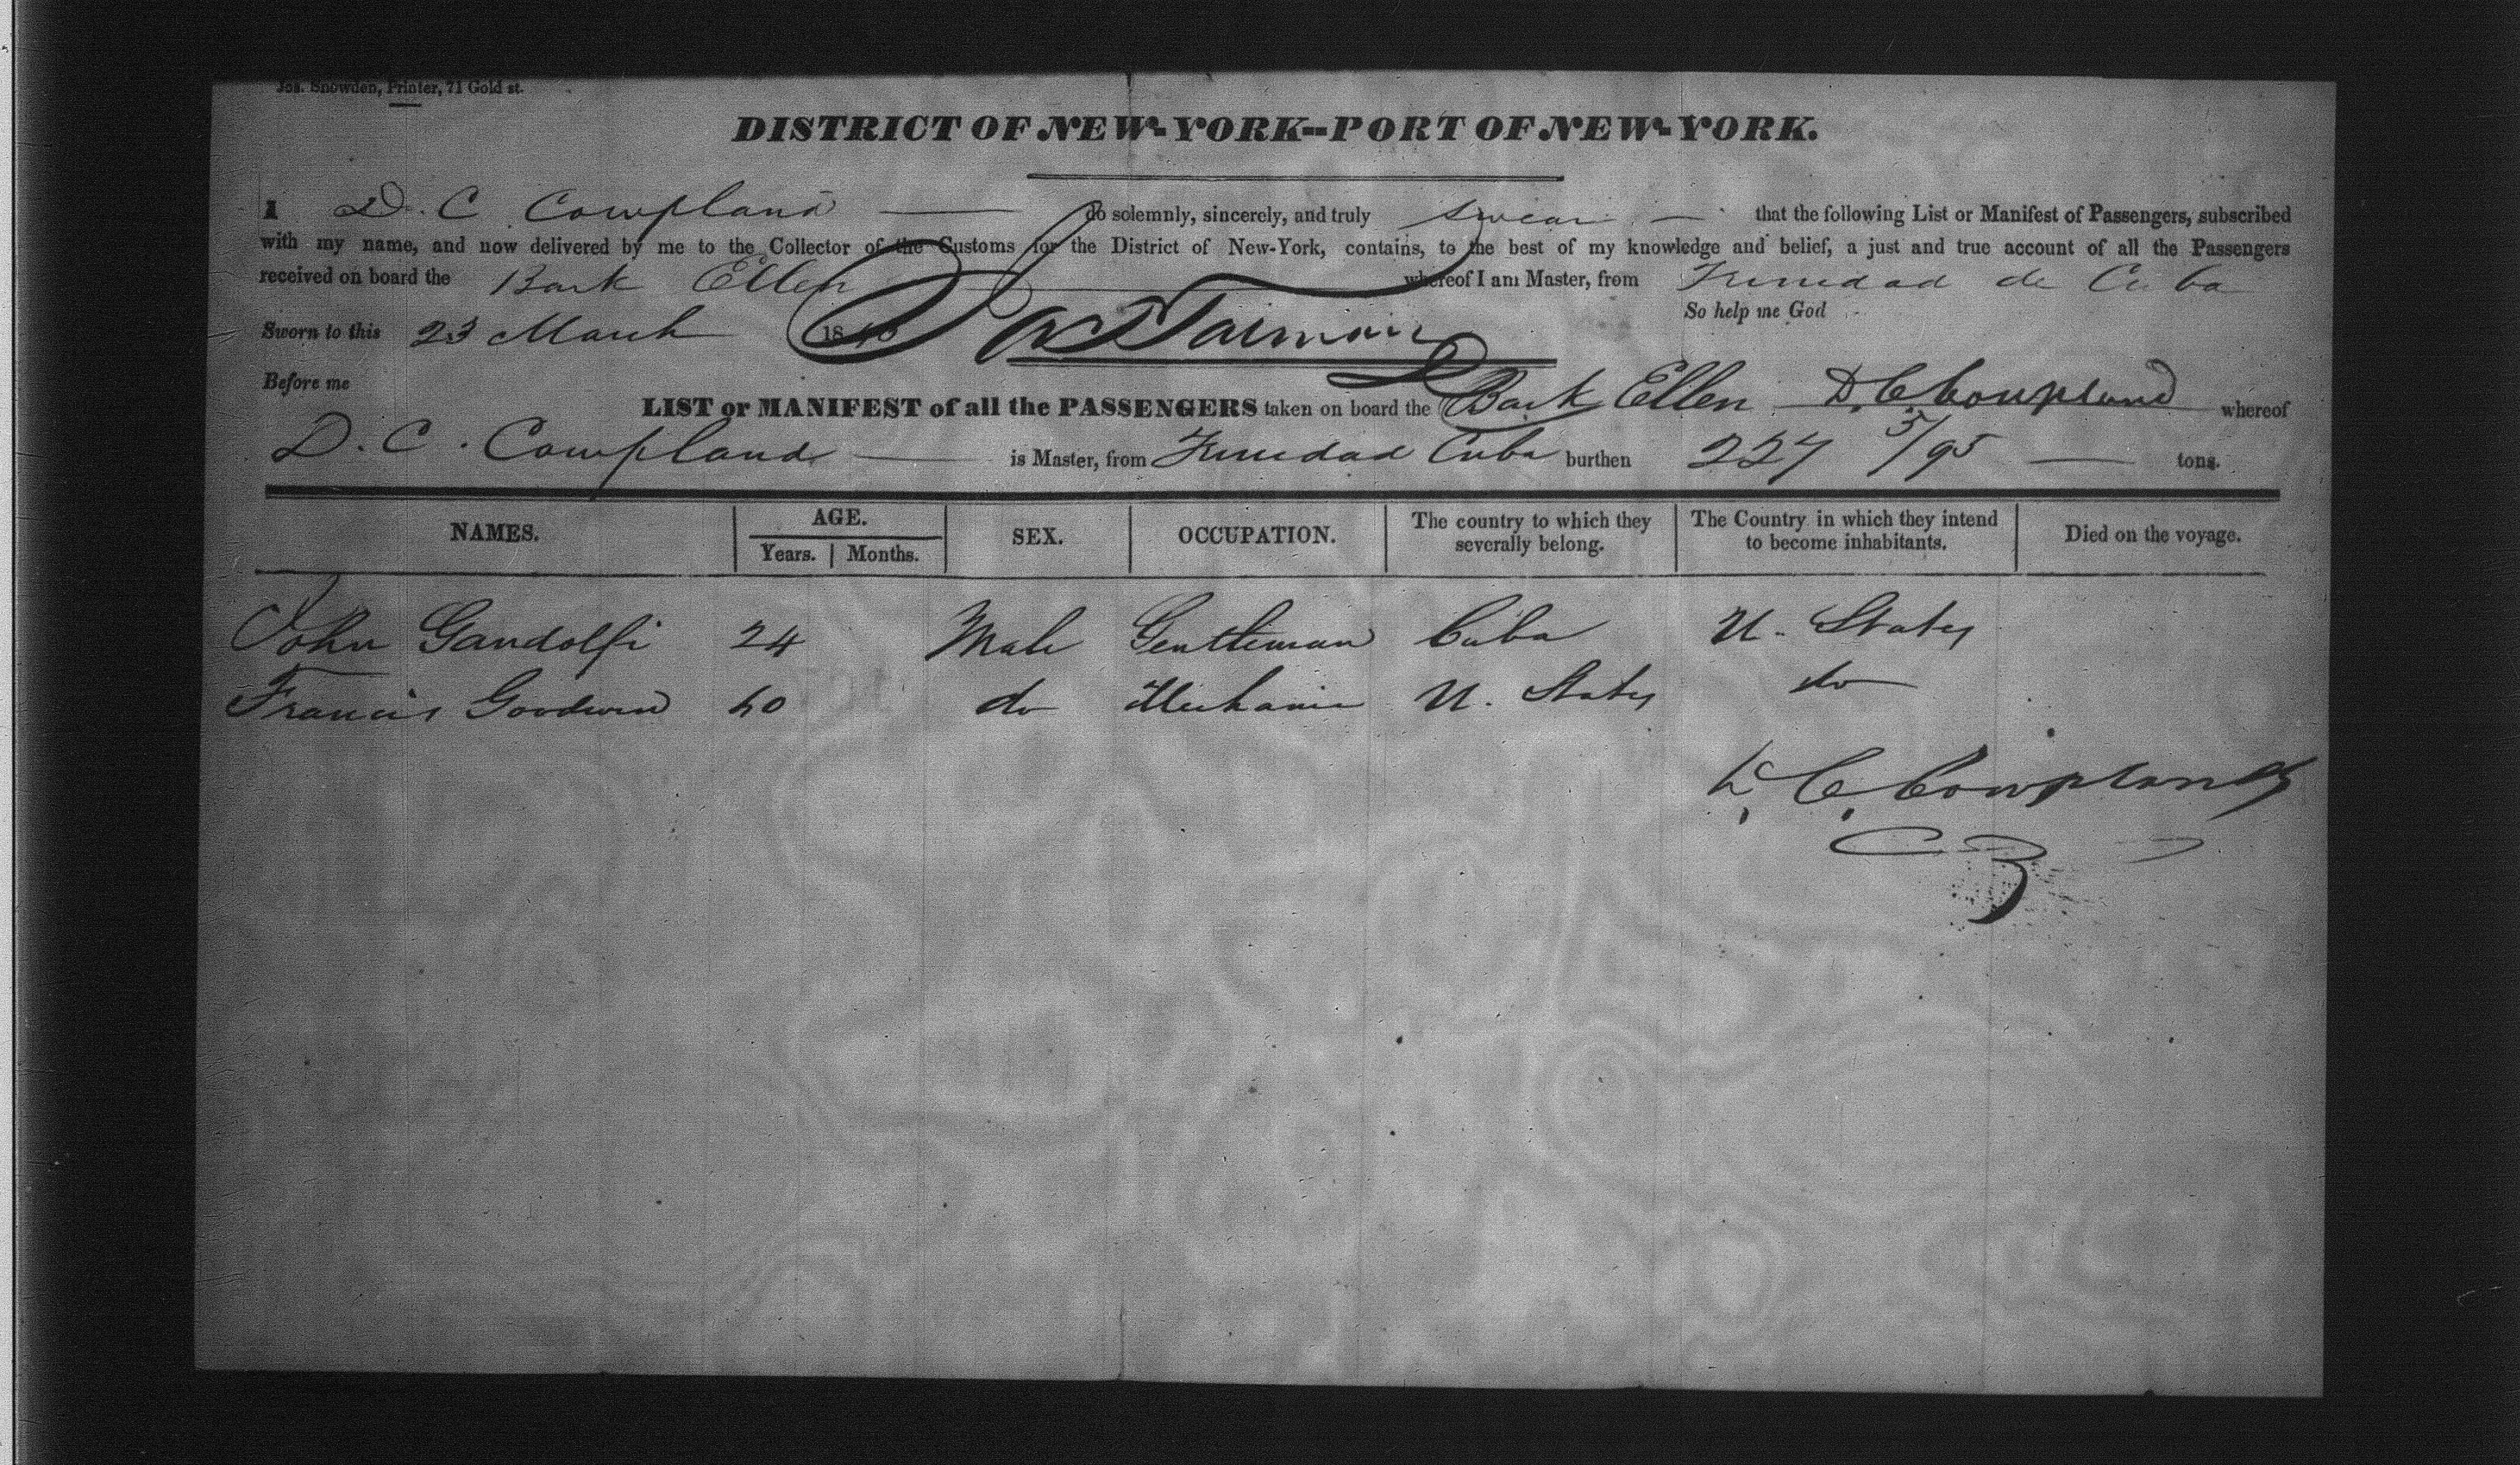 Jos. Snowden, Printer, 71 Gold st.
DISTRICT OF NEW-YORK--PORT OF NEW-YORK.
I D. C Cowpland do solemnly, sincerely, and truly swear that the following List or Manifest of Passengers, subscribed
with my name, and now delivered by me to the Collector of the Customs for the District of New-York, contains, to the best of my knowledge and belief, a just and true account of all the Passengers
received on board the Bark Ellen whereof I am Master, from Trinidad de Cuba
So help me God
Sworn to this 23 March 18
Before me
LIST or MANIFEST of all the PASSENGERS taken on board the Bark Ellen D. C. Cowpland whereof
D. C. Cowpland is Master, from Trinidad Cuba burthen 227 5/95 tons.
NAMES. AGE. SEX. OCCUPATION. The country to which they severally belong. The Country in which they intend to become inhabitants. Died on the voyage.
Years. Months.
John Gandolfi 24 Male Gentleman Cuba U. States
Francis Goodwin do Mechanic U. States do
D. C. Cowpland